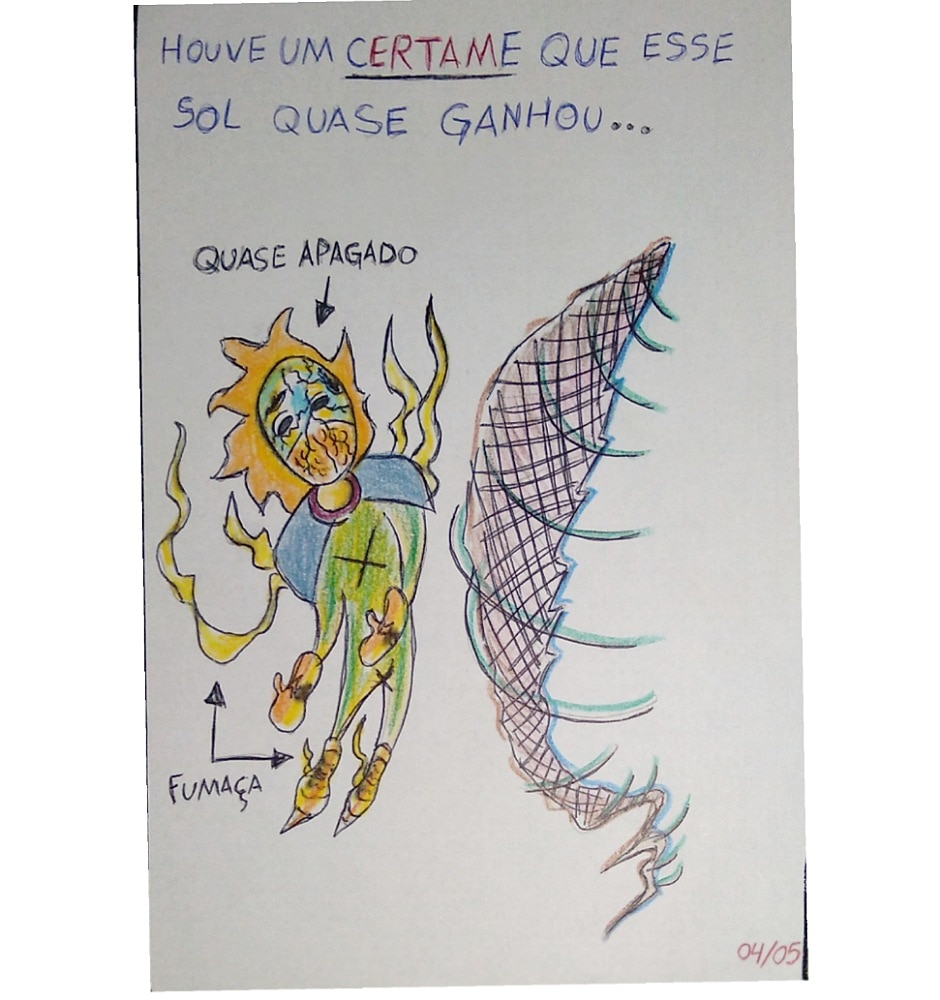 HOUVE UM CERTAME QUE ESSE
SOL QUASE GANHOU...
QUASE APAGADO
FUMAÇA
04/05